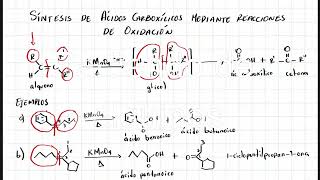 SÍNTESIS DE ÁCIDOS CARBOXÍLICOS MEDIANTE REACCIONES
DE OXIDACIÓN
R R
H R
KMnO4
Δ
alqueno
glicol
cetona
EJEMPLOS
a) KMnO4
Δ
OH + OH
ácido benzoico ácido butanoico
b) KMnO4
Δ
OH +
ácido pentanoico 1-ciclopentilpropan-1-ona